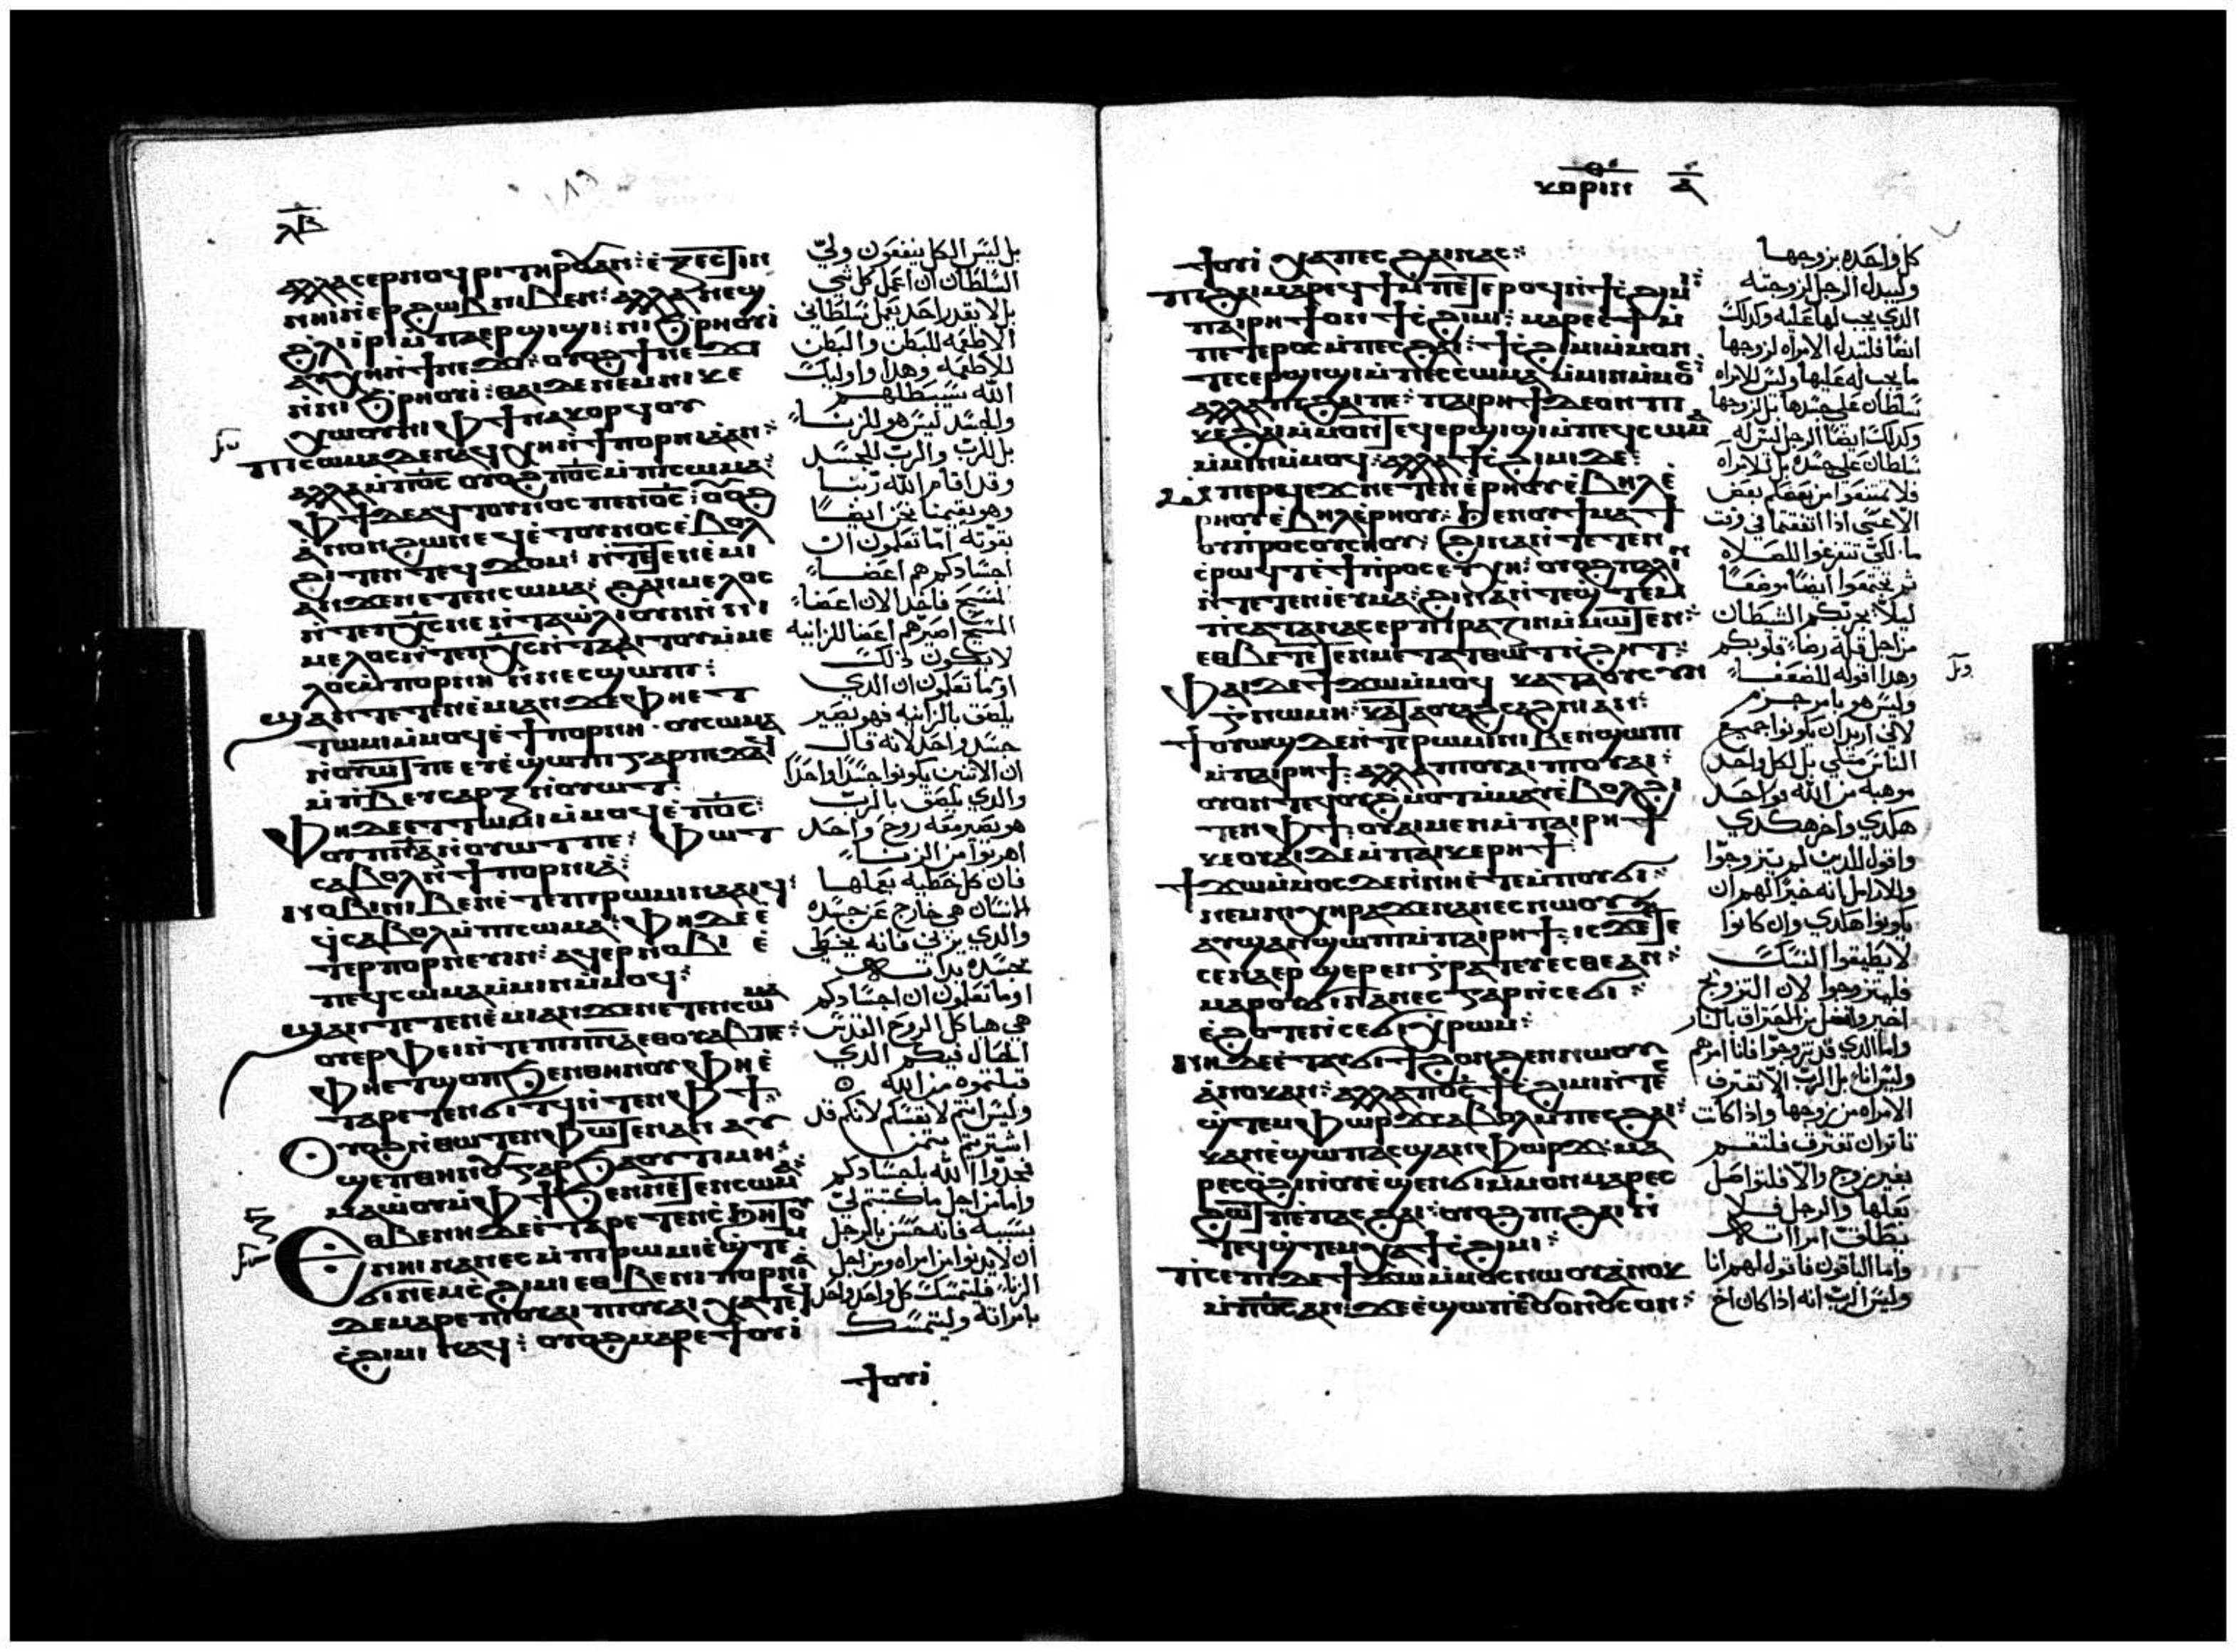 ⲗⲃ
ⲁⲗⲗⲁ ⲥⲉⲣⲛⲟϥⲣⲓ ⲧⲏⲣⲟⲩ ⲁⲛ: ⲉⲝⲉⲥⲧⲓⲛ
ⲛⲏⲓ ⲉⲉⲣϩⲱⲃ ⲛⲓⲃⲉⲛ: ⲁⲗⲗⲁ ⲛⲉϣ
ϩⲗⲓ ⲉⲣ ⲡⲁⲉⲣϣⲓϣⲓ: ⲛⲓϧⲣⲏⲟⲩⲓ
ⲛⲛⲓϧⲣⲏⲟⲩⲓ: ⲫⲁⲓ ⲇⲉ ⲛⲉⲙ ⲛⲓⲕⲉ
ⲭⲱⲟⲩⲛⲓ ⲫϯ ⲛⲁⲕⲟⲣϥⲟⲩ
ⲡⲓⲥⲱⲙⲁ ⲇⲉ ⲛⲁϥⲭⲏ ⲛϯⲡⲟⲣⲛⲓⲁ ⲁⲛ:
ⲁⲗⲗⲁ ⲙⲡⲟ̅ⲥ̅ ⲟⲩⲟϩ ⲡⲟ̅ⲥ̅ ⲙⲡⲓⲥⲱⲙⲁ:
ⲫϯ ⲇⲉ ⲁϥⲧⲟⲩⲛⲟⲥ ⲡⲉⲛⲟ̅ⲥ̅: ⲟⲩⲟϩ
ⲁⲛⲟⲛ ϩⲱⲛ ⲉϥⲉⲧⲟⲩⲛⲟⲥ ⲉⲃⲟⲗ
ϩⲓⲧⲉⲛ ⲧⲉϥϫⲟⲙ: ⲛⲧⲉⲧⲉⲛⲉⲙⲓ
ⲁⲛ ϫⲉ ⲛⲉⲧⲉⲛⲥⲱⲙⲁ: ϩⲁⲛⲙⲉⲗⲟⲥ
ⲛⲧⲉ ⲡⲭ̅ⲥ̅ ⲛⲉ ⲛⲧⲁⲱⲗⲓ ⲟⲩⲛ ⲛⲛⲓ
ⲙⲉⲗⲟⲥ ⲛⲧⲉ ⲡⲭ̅ⲥ̅ ⲛⲧⲁⲁⲓⲧⲟⲩ ⲙⲙⲉ
ⲗⲟⲥ ⲙⲡⲟⲣⲛⲏ ⲛⲛⲉⲥϣⲱⲡⲓ:
ϣⲁⲛ ⲧⲉⲧⲉⲛⲉⲙⲓ ⲁⲛ ϫⲉ ⲫⲏⲉⲧ
ⲧⲱⲙⲓ ⲙⲙⲟϥ ⲉϯⲡⲟⲣⲛⲏ: ⲟⲩⲥⲱⲙⲁ
ⲛⲟⲩⲱⲧ ⲡⲉ ⲉⲩⲉϣⲱⲡⲓ ⲅⲁⲣ ⲡⲉϫⲁϥ
ⲙⲡⲃ ⲉⲩⲥⲁⲣⲝ ⲛⲟⲩⲱⲧ:
ⲫⲏ ⲇⲉ ⲉⲧⲧⲱⲙⲓ ⲙⲙⲟϥ ⲉⲡⲟ̅ⲥ̅:
ⲟⲩⲡ̅ⲛ̅ⲁ̅ ⲛⲟⲩⲱⲧ ⲡⲉ: ⲫⲱⲧ
ⲥⲁⲃⲟⲗ ⲛϯⲡⲟⲣⲛⲓⲁ:
ⲛⲟⲃⲓ ⲛⲓⲃⲉⲛ ⲉⲧⲉ ⲡⲓⲣⲱⲙⲓ ⲛⲁⲁⲓϥ:
ϥⲥⲁⲃⲟⲗ ⲙⲡⲓⲥⲱⲙⲁ: ⲫⲏ ⲇⲉ ⲉ
ⲧⲉⲣⲡⲟⲣⲛⲉⲩⲓⲛ: ⲁϥⲉⲣⲛⲟⲃⲓ ⲉ
ⲡⲉϥⲥⲱⲙⲁ ⲙⲙⲓⲛ ⲙⲙⲟϥ:
ϣⲁⲛ ⲧⲉⲧⲉⲛⲉⲙⲓ ⲁⲛ ϫⲉ ⲛⲉⲧⲉⲛⲥⲱⲙⲁ
ⲟⲩⲉⲣⲫⲉⲓ ⲛⲧⲉ ⲡⲓⲡ̅ⲛ̅ⲁ̅ ⲉⲑⲟⲩⲁⲃ ⲡⲉ:
ⲫⲏⲉⲧϣⲟⲡ ϧⲉⲛ ⲑⲏⲛⲟⲩ ⲫⲏⲉ
ⲧⲁⲣⲉⲧⲉⲛϭⲓⲧϥ ⲛⲧⲉⲛ ⲫϯ:
ⲟⲩⲟϩ ⲛⲑⲱⲧⲉⲛ ⲫⲱⲧⲉⲛ ⲁⲛ ⲁⲩ
ϣⲉⲡ ⲑⲏⲛⲟⲩ ⲅⲁⲣ ϧⲁ ⲟⲩⲧⲓⲙⲏ:
ⲙⲁⲱⲟⲩ ⲙⲫϯ ϧⲉⲛ ⲡⲉⲧⲉⲛⲥⲱⲙⲁ:
ⲉⲑⲃⲉ ⲛⲏ ⲇⲉ ⲉⲧⲁⲣⲉⲧⲉⲛⲥϧⲏⲧⲟⲩ
ⲛⲏⲓ ⲛⲁⲛⲉⲥ ⲙⲡⲓⲣⲱⲙⲓ ⲉϣⲧⲉⲙ
ϭⲓ ⲛⲉⲙ ⲥϩⲓⲙⲓ ⲉⲑⲃⲉ ⲛⲓⲡⲟⲣⲛⲓⲁ
ⲇⲉ ⲙⲁⲣⲉ ⲡⲓⲟⲩⲁⲓ ⲡⲓⲟⲩⲁⲓ ⲭⲁ ⲧⲉϥ
ⲥϩⲓⲙⲓ ⲛⲁϥ: ⲟⲩⲟϩ ⲙⲁⲣⲉ ϯⲟⲩⲓ
بل ليس الكل ينفعون ولي
السلطان ان اعمل كل شي
بل لا يقدر احد يعمل سلطاني
الاطعمه للبطن والبطن
للاطعمه وهذا واوليك
الله سيبطلهم
والجسد ليس هو للزنا
بل للرب والرب للجسد
وقد اقام الله ربنا
وهو يقيمنا نحن ايضا
بقوته اما تعلمون ان
اجسادكم هم اعضا
المسيح فاخذ الان اعضا
المسيح اصيرهم اعضا للزانيه
لا يكون ذلك
اوما تعلمون ان الذي
يلصق بالزانيه فهو يصير
جسد واحد لانه قال
ان الاثنين يكونوا جسدا واحدا
والذي يلصق بالرب
هو يصير معه روح واحد
اهربوا من الزنا
فان كل خطيه يعملها
الانسان هي خارج عن جسده
والذي يزني فانه يخطي
بجسده بذاته
اوما تعلمون ان اجسادكم
هي هياكل الروح القدس
الحال فيكم الذي
قبلتموه من الله
وليس انتم لانفسكم لانكم قد
اشتريتم بثمن
مجدوا الله باجسادكم
واما من اجل ما كتبتم لي
بسببه فانه حسن بالرجل
ان لا يدنوا من امراه ومن اجل
الزنا فليتمسك كل واحد واحد
بامراته وليتمسك
ϯⲟⲩⲓ
ⲕⲟⲣⲓⲛ ⲁ
ϯⲟⲩⲓ ⲭⲁ ⲡⲉⲥϩⲁⲓ ⲛⲁⲥ:
ⲡⲓϩⲁⲓ ⲙⲁⲣⲉϥϯ ⲙⲡⲉⲧⲉⲣⲟϥ ⲛϯⲥϩⲓⲙⲓ:
ⲡⲁⲓⲣⲏϯ ⲟⲛ ϯⲥϩⲓⲙⲓ: ⲙⲁⲣⲉⲥϯ ⲙ
ⲡⲉⲧⲉⲣⲟⲥ ⲙⲡⲉⲥϩⲁⲓ: ϯⲥϩⲓⲙⲓ ⲙⲙⲟⲛ
ⲧⲉⲥⲉⲣϣⲓϣⲓ ⲙⲡⲉⲥⲥⲱⲙⲁ ⲙⲙⲓⲛ ⲙⲙⲟⲥ
ⲁⲗⲗⲁ ⲡⲉⲥϩⲁⲓ ⲡⲉ: ⲡⲁⲓⲣⲏϯ ⲇⲉ ⲟⲛ ⲡⲓ
ⲕⲉϩⲁⲓ ⲙⲙⲟⲛⲧⲉϥⲉⲣϣⲓϣⲓ ⲙⲡⲉϥⲥⲱⲙⲁ
ⲙⲙⲓⲛ ⲙⲙⲟϥ: ⲁⲗⲗⲁ ϯⲥϩⲓⲙⲓ ⲇⲉ:
ⲣⲏⲟⲩ ⲉⲃⲏⲗ ⲉⲣⲏⲟⲩ: ϧⲉⲛ ⲟⲩϯⲙⲁϯ
ⲟⲩⲡⲣⲟⲥ ⲟⲩⲥⲏⲟⲩ: ϩⲓⲛⲁ ⲛⲧⲉⲧⲉⲛ
ⲥⲣⲱϥⲧ ⲉϯⲡⲣⲟⲥⲉⲩⲭⲏ: ⲟⲩⲟϩ ⲡⲁⲗⲓⲛ
ⲛⲧⲉⲧⲉⲛⲓ ⲉⲩⲙⲁ: ϩⲓⲛⲁ ⲛⲧⲉϥϣⲧⲉⲙ
ⲡⲥⲁⲧⲁⲛⲁⲥ ⲉⲣⲡⲓⲣⲁⲍⲓⲛ ⲙⲙⲱⲧⲉⲛ:
ⲉⲑⲃⲉ ⲧⲉⲧⲉⲛⲙⲉⲧⲁⲧⲑⲱⲧ ⲛϩⲏⲧ:
ⲫⲁⲓ ⲇⲉ ϯϫⲱ ⲙⲙⲟϥ ⲕⲁⲧⲁ ⲟⲩⲥⲩⲛ
ⲅⲛⲱⲙⲏ: ⲕⲁⲧⲁ ⲟⲩⲁϩⲥⲁϩⲛⲓ ⲁⲛ:
ϯⲟⲩⲱϣ ⲇⲉ ⲛⲧⲉ ⲣⲱⲙⲓ ⲛⲓⲃⲉⲛ ϣⲱⲡⲓ
ⲙⲡⲁⲓⲣⲏϯ: ⲁⲗⲗⲁ ⲡⲓⲟⲩⲁⲓ ⲡⲓⲟⲩⲁⲓ:
ⲟⲩⲟⲛ ⲧⲉϥ ⲟⲩϩⲙⲟⲧ ⲙⲙⲁⲩ ⲉⲃⲟⲗ ϩⲓ
ⲧⲉⲛ ⲫϯ: ⲟⲩⲁⲓ ⲙⲉⲛ ⲙⲡⲁⲓⲣⲏϯ
ⲕⲉⲟⲩⲁⲓ ⲇⲉ ⲙⲡⲁⲓⲕⲉⲣⲏϯ:
ϯϫⲱ ⲙⲙⲟⲥ ⲇⲉ ⲛⲛⲏ ⲉⲧⲉ ⲙⲡⲟⲩϭⲓ:
ⲛⲉⲙ ⲛⲓⲭⲏⲣⲁ ϫⲉ ⲛⲁⲛⲉⲥ ⲛⲱⲟⲩ
ⲁⲩϣⲁⲛϣⲱⲡⲓ ⲙⲡⲁⲓⲣⲏϯ: ⲓⲥϫⲉ ⲇⲉ
ⲥⲉⲛⲁⲉⲣ ϣⲉⲣⲉⲛⲅⲣⲁⲧⲉⲩⲉⲥⲑⲉ ⲁⲛ:
ⲙⲁⲣⲟⲩϭⲓ ⲛⲁⲛⲉⲥ ⲅⲁⲣ ⲛⲥⲉϭⲓ:
ⲉϩⲟⲧⲉ ⲛⲥⲉϭⲓⲭⲣⲱⲙ:
ⲛⲏ ⲇⲉ ⲉⲧⲁⲩϭⲓ ϯϩⲟⲛϩⲉⲛ ⲛⲱⲟⲩ
ⲁⲛⲟⲕ ⲁⲛ: ⲁⲗⲗⲁ ⲡⲟ̅ⲥ̅ ϯⲥϩⲓⲙⲓ ⲛⲧⲉ
ϣⲧⲉⲙⲫⲱⲣϫ ⲥⲁⲃⲟⲗ ⲙⲡⲉⲥϩⲁⲓ:
ⲕⲁⲛ ⲉϣⲱⲡ ⲁⲥϣⲁⲛⲫⲱⲣϫ: ⲙⲁ
ⲣⲉⲥⲟϩⲓ ⲛⲟⲩⲉϣⲉⲛϭⲓ ⲙⲙⲟⲛ ⲙⲁⲣⲉⲥ
ϩⲱⲧⲡ ⲉⲡⲉⲥϩⲁⲓ: ⲟⲩⲟϩ ⲡⲓϩⲁⲓ ⲛ
ⲧⲉϥϣⲧⲉⲙⲭⲁ ϯⲥϩⲓⲙⲓ:
ⲡⲥⲉⲡⲓ ⲇⲉ ϯϫⲱ ⲙⲙⲟⲥ ⲛⲱⲟⲩ ⲁⲛⲟⲕ
ⲙⲡⲟ̅ⲥ̅ ⲁⲛ: ϫⲉ ⲉϣⲱⲡ ⲟⲩⲟⲛ ⲟⲩⲥⲟⲛ:
كل واحده بزوجها
وليبدل الرجل لزوجته
الذي يجب لها عليه وكذلك
ايضا فلتبدل الامراه لزوجها
ما يجب له عليها وليس للامراه
سلطان على جسدها بل لزوجها
وكذلك ايضا الرجل ليس له
سلطان على جسده بل للامراه
فلا تمتنعوا من بعضكم بعض
الا عسى اذا اتفقتما في وقت
ما. لكي تتفرغوا للصلاه
ثم تجتمعوا ايضا موضعا
ليلا يجربكم الشيطان
من اجل قله رضا قلوبكم
وهذا اقوله للضعفا
وليس هو بامر جزم
لاني اريد ان يكونوا جميع
الناس مثلي بل لكل واحد
موهبه من الله فواحد
هكذي واخر هكذي
واقول للذين لم يتزوجوا
والارامل انه خيرا لهم ان
يكونوا هكذي وان كانوا
لا يطيقوا النسك
فليتزوجوا لان التزويج
اخير وافضل من الحريق بالنار
واما الذي قد تزوجوا فانا امرهم
وليس انا بل الرب الا تفترق
الامراه من زوجها واذا كانت
تاثر ان تفترق فلتقم
بغير زوج والا فلتواصل
بعلها والرجل فلا
يطلق امراته
واما الباقون فاقول لهم انا
وليس الرب انه اذا كان اخ